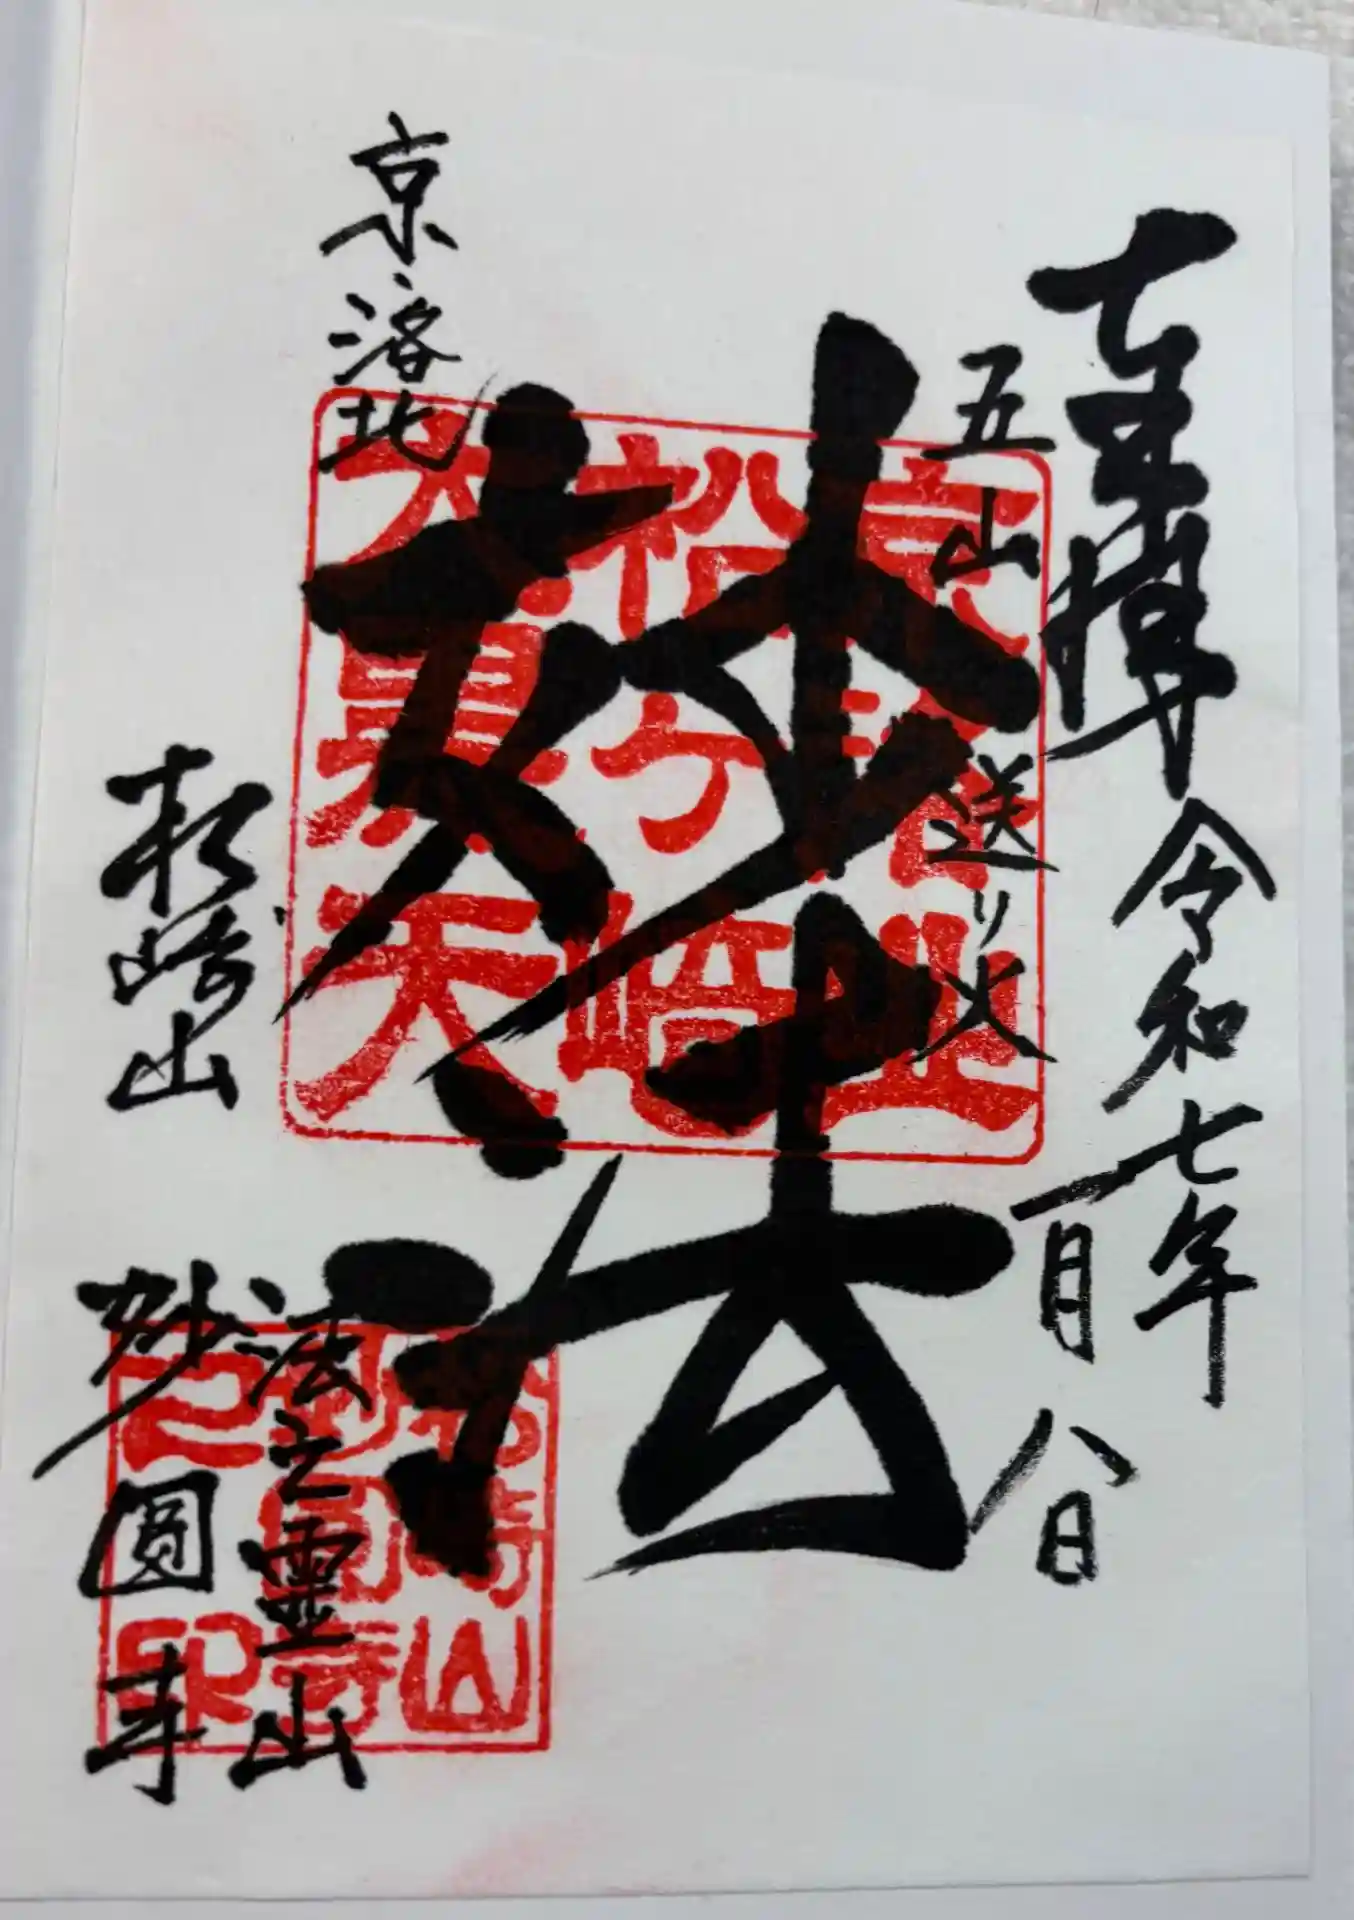 奉拝
令和七年
一月八日
五山送り火
妙法
京洛北
松ヶ崎
大黒天
松崎山
法之霊山
妙圓寺